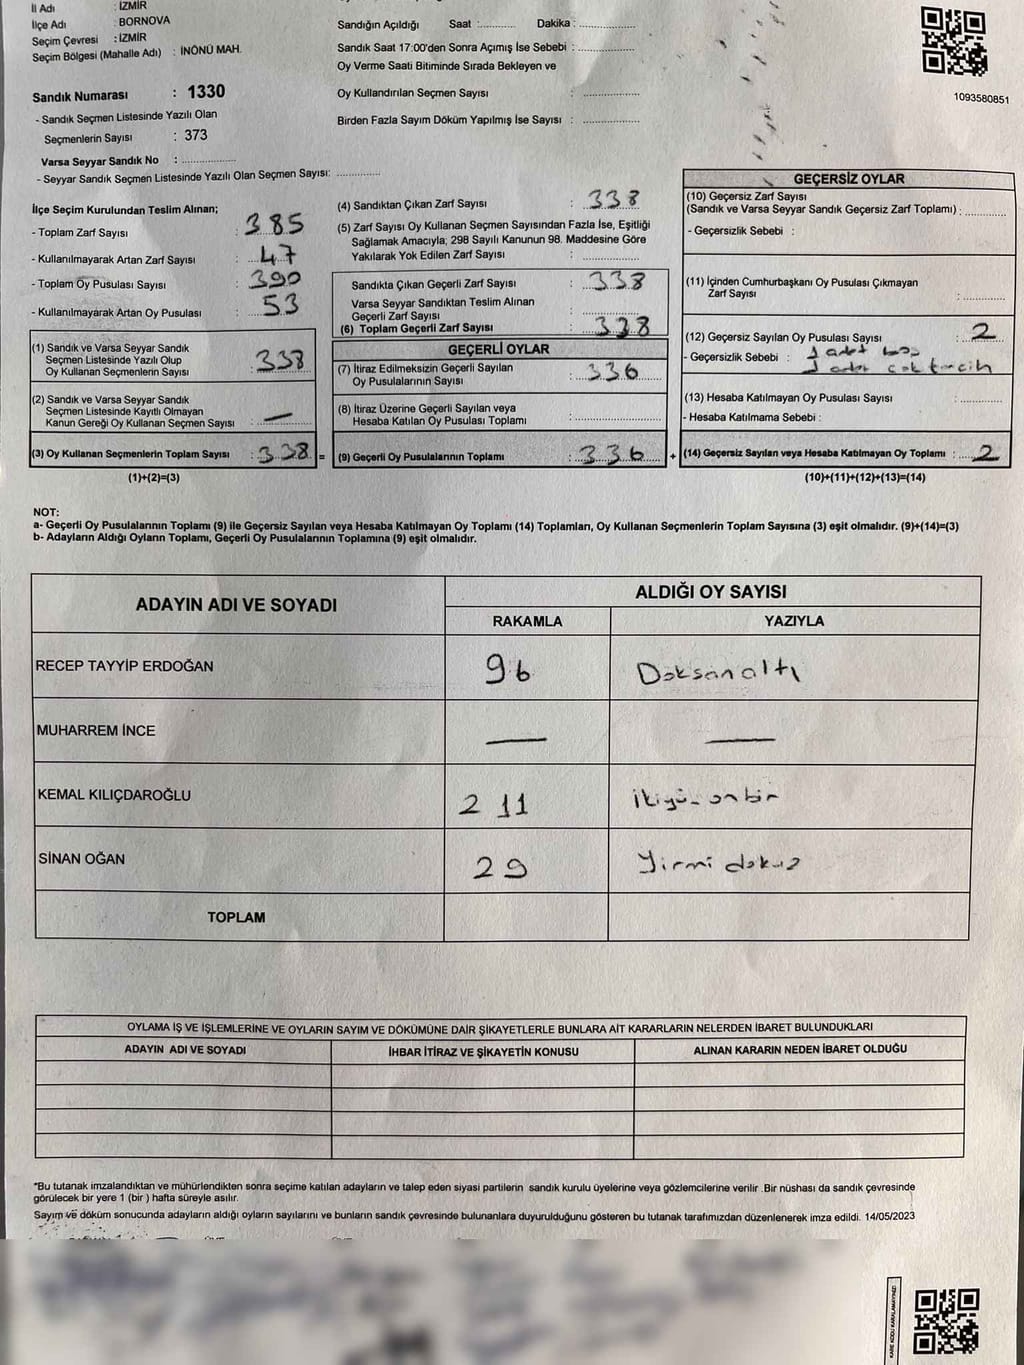 İl Adı : İZMİR
İlçe Adı : BORNOVA
Seçim Çevresi : İZMİR
Seçim Bölgesi (Mahalle Adı) : İNÖNÜ MAH.
Sandık Numarası : 1330
- Sandık Seçmen Listesinde Yazılı Olan
Seçmenlerin Sayısı : 373
Varsa Seyyar Sandık No : ................
- Seyyar Sandık Seçmen Listesinde Yazılı Olan Seçmen Sayısı: ............
Sandığın Açıldığı Saat :.......... Dakika :...............
Sandık Saat 17:00'den Sonra Açımış İse Sebebi : ...............
Oy Verme Saati Bitiminde Sırada Bekleyen ve
Oy Kullandırılan Seçmen Sayısı : ...............
Birden Fazla Sayım Döküm Yapılmış İse Sayısı : ...............
1093580851
İlçe Seçim Kurulundan Teslim Alınan;
- Toplam Zarf Sayısı : 385
- Kullanılmayarak Artan Zarf Sayısı : 47
- Toplam Oy Pusulası Sayısı : 390
- Kullanılmayarak Artan Oy Pusulası : 53
(1) Sandık ve Varsa Seyyar Sandık
Seçmen Listesinde Yazılı Olup
Oy Kullanan Seçmenlerin Sayısı : 338
(2) Sandık ve Varsa Seyyar Sandık
Seçmen Listesinde Kayıtlı Olmayan
Kanun Gereği Oy Kullanan Seçmen Sayısı : —
(3) Oy Kullanan Seçmenlerin Toplam Sayısı : 338 =
(1)+(2)=(3)
(4) Sandıktan Çıkan Zarf Sayısı : 338
(5) Zarf Sayısı Oy Kullanan Seçmen Sayısından Fazla İse, Eşitliği
Sağlamak Amacıyla; 298 Sayılı Kanunun 98. Maddesine Göre
Yakılarak Yok Edilen Zarf Sayısı : ...............
Sandıkta Çıkan Geçerli Zarf Sayısı : 338
Varsa Seyyar Sandıktan Teslim Alınan
Geçerli Zarf Sayısı : ...............
(6) Toplam Geçerli Zarf Sayısı : 338
GEÇERLİ OYLAR
(7) İtiraz Edilmeksizin Geçerli Sayılan
Oy Pusulalarının Sayısı : 336
(8) İtiraz Üzerine Geçerli Sayılan veya
Hesaba Katılan Oy Pusulası Toplamı : ...............
(9) Geçerli Oy Pusulalarının Toplamı : 336 +
GEÇERSİZ OYLAR
(10) Geçersiz Zarf Sayısı
(Sandık ve Varsa Seyyar Sandık Geçersiz Zarf Toplamı) : ............
- Geçersizlik Sebebi :
(11) İçinden Cumhurbaşkanı Oy Pusulası Çıkmayan
Zarf Sayısı : ............
(12) Geçersiz Sayılan Oy Pusulası Sayısı : 2
- Geçersizlik Sebebi : 1 adet boş
1 adet çok tercih
(13) Hesaba Katılmayan Oy Pusulası Sayısı : ............
- Hesaba Katılmama Sebebi :
(14) Geçersiz Sayılan veya Hesaba Katılmayan Oy Toplamı : 2
(10)+(11)+(12)+(13)=(14)
NOT:
a- Geçerli Oy Pusulalarının Toplamı (9) ile Geçersiz Sayılan veya Hesaba Katılmayan Oy Toplamı (14) Toplamları, Oy Kullanan Seçmenlerin Toplam Sayısına (3) eşit olmalıdır. (9)+(14)=(3)
b- Adayların Aldığı Oyların Toplamı, Geçerli Oy Pusulalarının Toplamına (9) eşit olmalıdır.
ADAYIN ADI VE SOYADI ALDIĞI OY SAYISI
RAKAMLA YAZIYLA
RECEP TAYYİP ERDOĞAN 96 Doksanaltı
MUHARREM İNCE — —
KEMAL KILIÇDAROĞLU 211 ikiyüz onbir
SİNAN OĞAN 29 Yirmi dokuz
TOPLAM
OYLAMA İŞ VE İŞLEMLERİNE VE OYLARIN SAYIM VE DÖKÜMÜNE DAİR ŞİKAYETLERLE BUNLARA AİT KARARLARIN NELERDEN İBARET BULUNDUKLARI
ADAYIN ADI VE SOYADI İHBAR İTİRAZ VE ŞİKAYETİN KONUSU ALINAN KARARIN NEDEN İBARET OLDUĞU
*Bu tutanak imzalandıktan ve mühürlendikten sonra seçime katılan adayların ve talep eden siyasi partilerin sandık kurulu üyelerine veya gözlemcilerine verilir .Bir nüshası da sandık çevresinde
görülecek bir yere 1 (bir ) hafta süreyle asılır.
Sayım ve döküm sonucunda adayların aldığı oyların sayılarını ve bunların sandık çevresinde bulunanlara duyurulduğunu gösteren bu tutanak tarafımızdan düzenlenerek imza edildi. 14/05/2023
KARE KODU KARALAMAYINIZ!